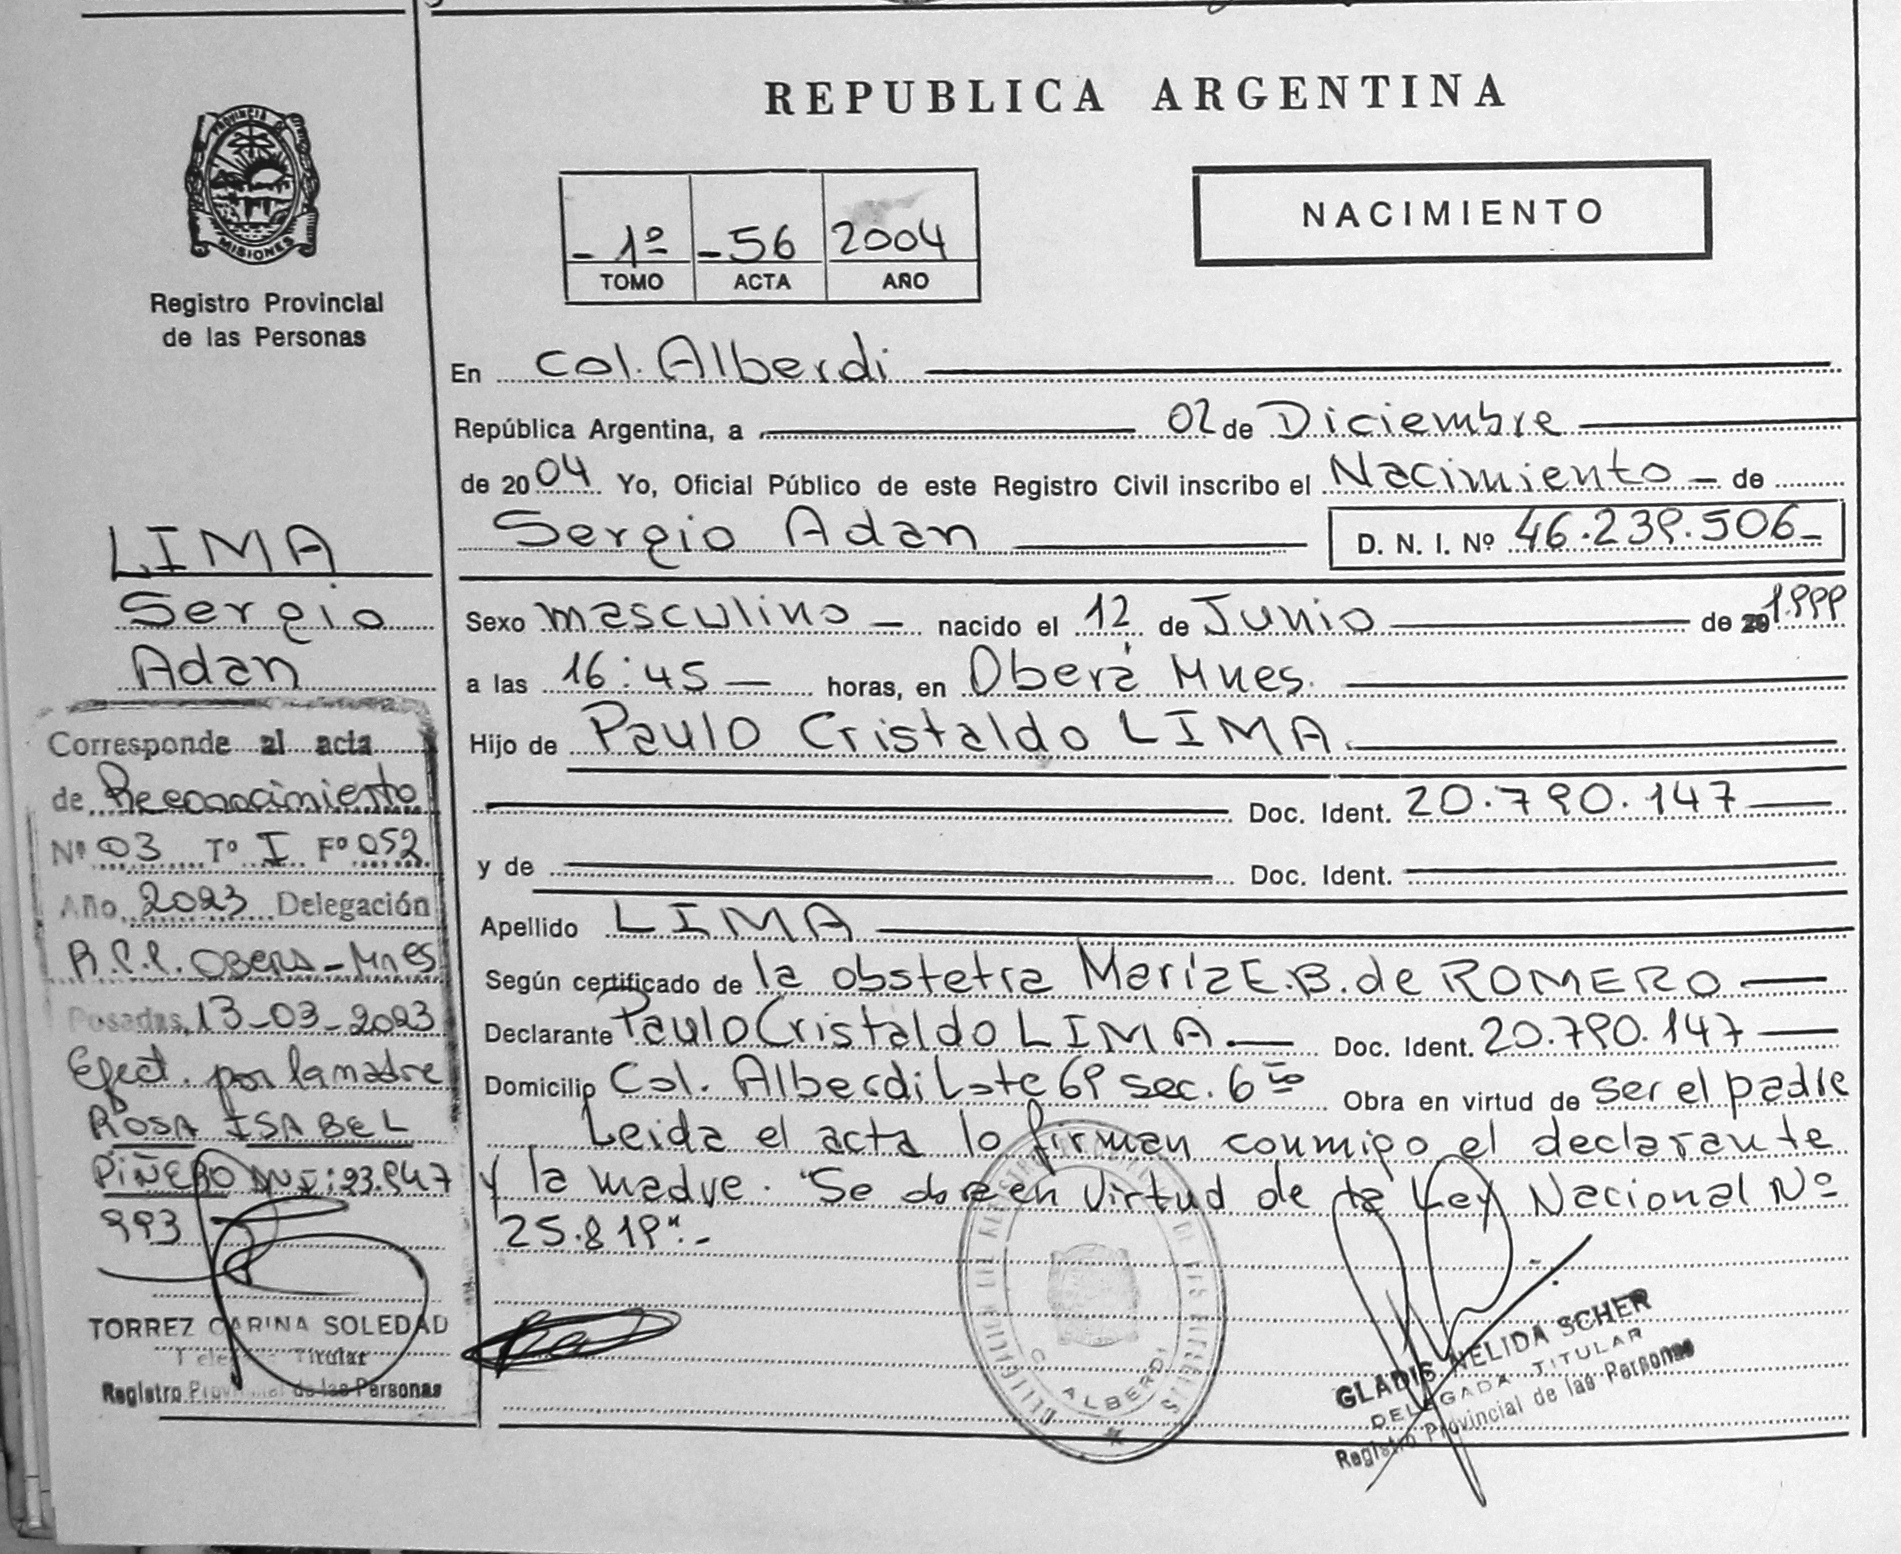 REPUBLICA ARGENTINA
PROVINCIA DE
MISIONES
Registro Provincial
de las Personas
- 1º - 56 2004
TOMO ACTA AÑO
NACIMIENTO
En Col. Alberdi
República Argentina, a 02 de Diciembre
de 2004 Yo, Oficial Público de este Registro Civil inscribo el Nacimiento - de
Sergio Adan D. N. I. Nº 46.239.506-
Sexo masculino - nacido el 12 de Junio de 1.999
a las 16:45 horas, en Oberá Mnes.
Hijo de Paulo Cristaldo LIMA
Doc. Ident. 20.790.147
y de Doc. Ident.
Apellido LIMA
Según certificado de la obstetra María E. B. de ROMERO
Declarante Paulo Cristaldo LIMA. Doc. Ident. 20.790.147
Domicilio Col. Alberdi Lote 69 sec. 6ta Obra en virtud de ser el padre
Leida el acta lo firman conmigo el declarante
y la madre. "Se obra en virtud de la Ley Nacional Nº
25.819".-
LIMA
Sergio
Adan
Corresponde al acta
de Reconocimiento
Nº 03 Tº I Fº 052
Año 2023 Delegación
R.P.P. OBERA-Mnes
Posadas, 13-03-2023
Efect. por la madre
ROSA ISABEL
PIÑERO DNI: 23.947
993
TORREZ CARINA SOLEDAD
Titular
Registro Provincial de las Personas
C. ALBERDI
GLADIS NELIDA SCHER
DELEGADA TITULAR
Registro Provincial de las Personas